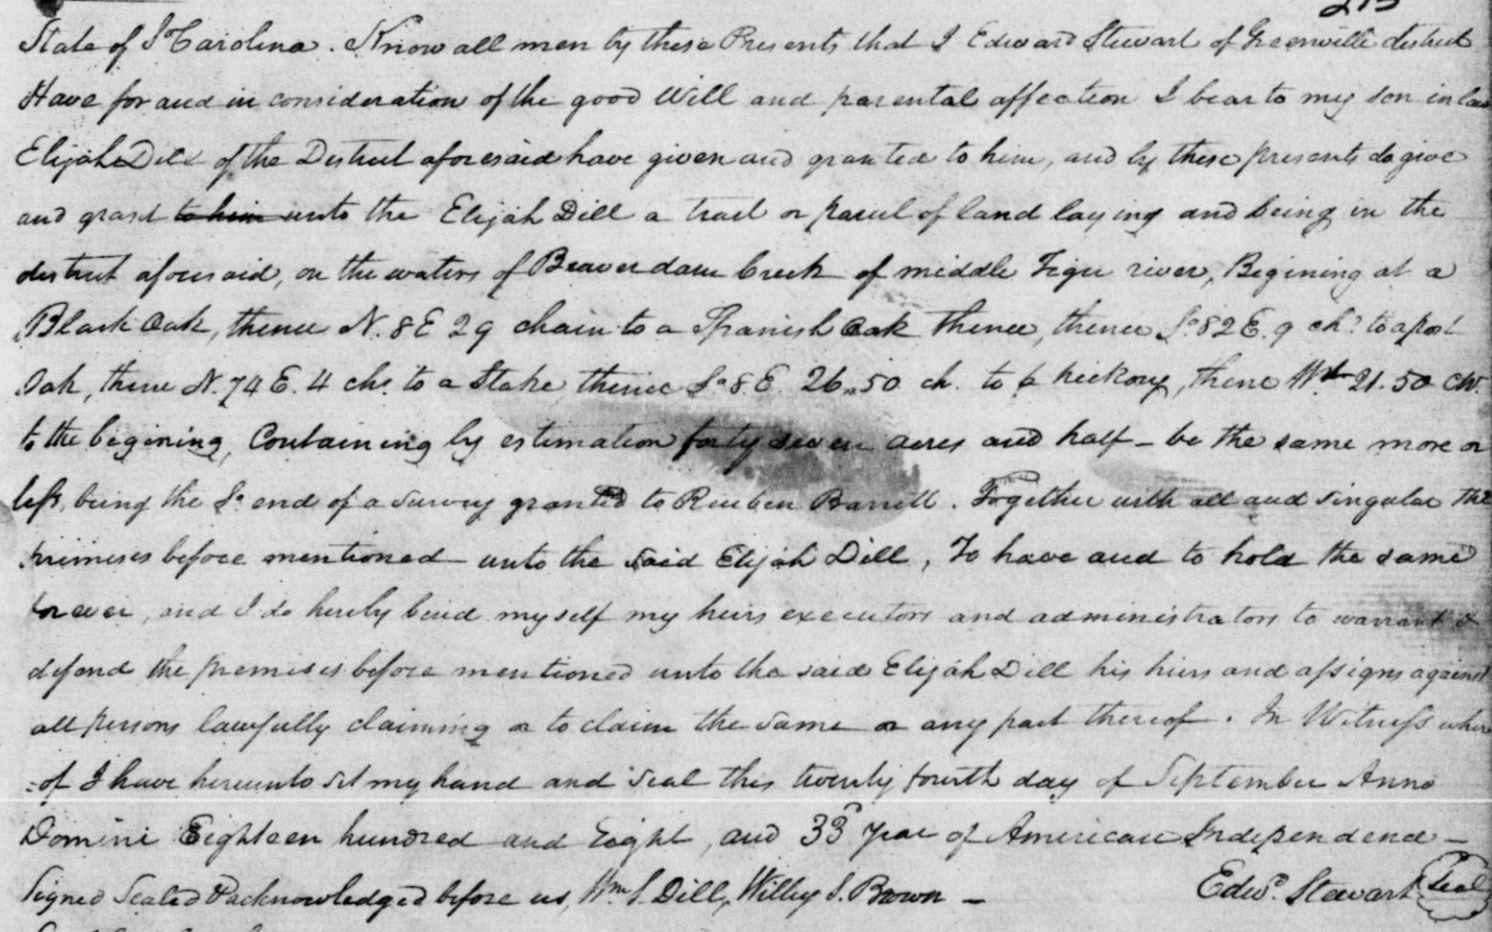 State of S Carolina. Know all men by these Presents that I Edward Stewart of Greenville district
Have for and in consideration of the good Will and parental affection I bear to my son in law
Elijah Dill of the District aforesaid have given and granted to him, and by these presents do give
and grant to him unto the Elijah Dill a tract or parcel of land laying and being in the
district aforesaid, on the waters of Beaverdam Creek of middle Tiger river, Begining at a
Black Oak, thence N. 8 E 29 chain to a Spanish Oak Thence, thence So 82 E. 9 chs to a post
Oak, thence N. 74 E. 4 chs to a Stake, thence So 8 E. 26..50 ch. to a hickory, thence Wt 21.50 ch.
to the begining, Containing by estimation forty seven acres and half - be the same more or
less, being the So end of a survey granted to Reuben Barrett. Together with all and singular the
premises before mentioned unto the said Elijah Dill, To have and to hold the same
forever, and I do hereby bind myself my heirs executors and administrators to warrant &
defend the premises before mentioned unto the said Elijah Dill his heirs and assigns against
all persons lawfully claiming or to claim the same or any part thereof. In Witness where
=of I have hereunto set my hand and seal this twenty fourth day of September Anno
Domini Eighteen hundred and Eight, and 33d year of American Independence -
Signed Sealed & acknowledged before us, Wm S. Dill, Willey S. Brown - Edwd. Stewart Seal